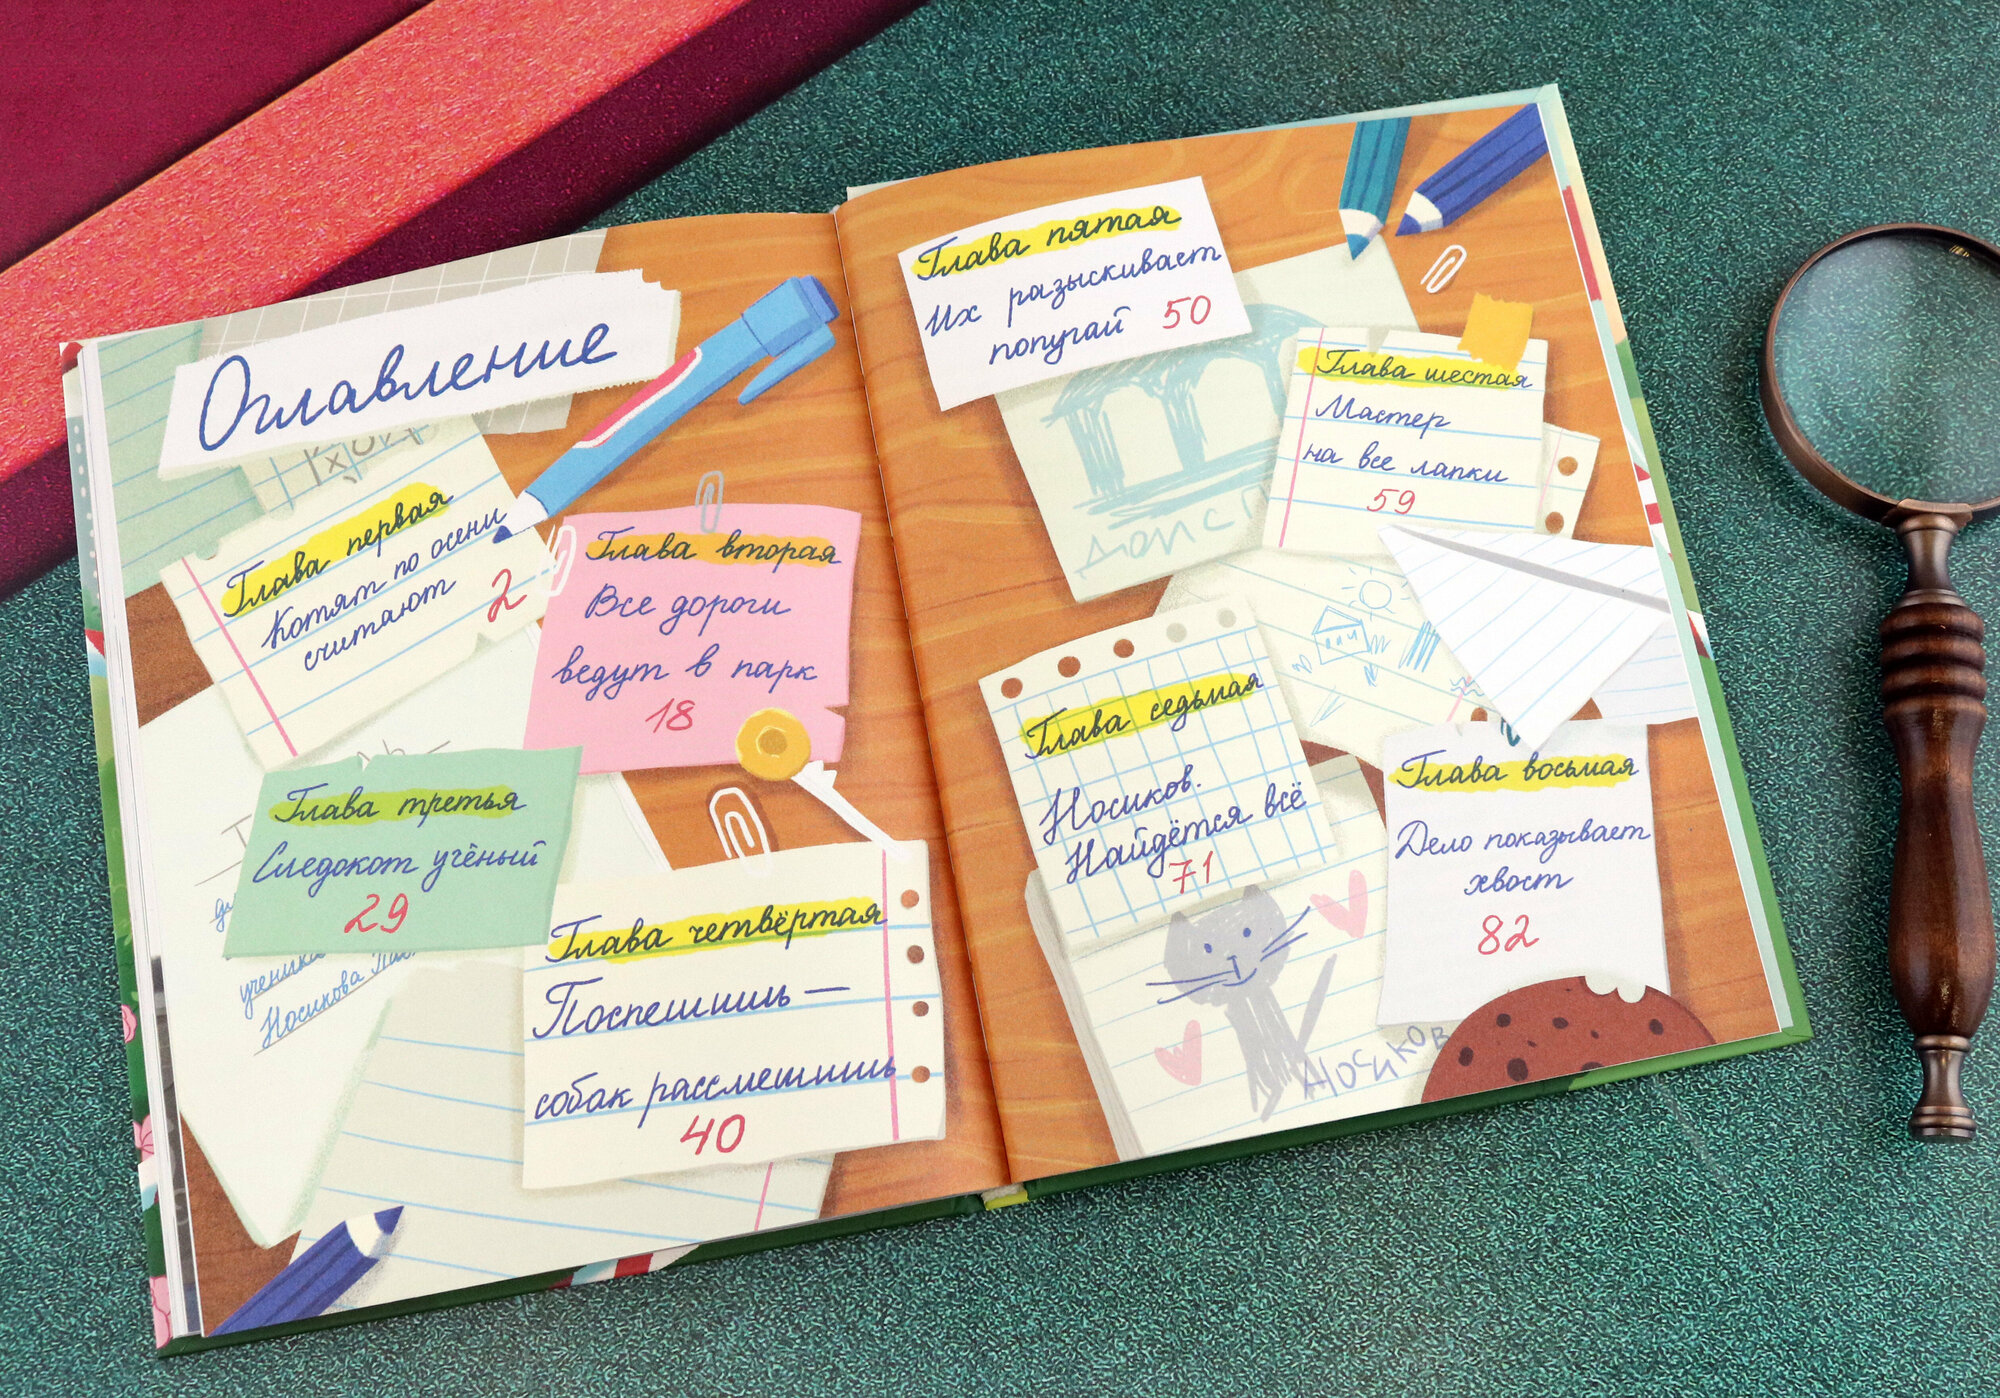 Оглавление
Глава первая
Котят по осени
считают 2
Глава вторая
Все дороги
ведут в парк
18
Глава третья
Следокот учёный
29
ученика
Носикова
Глава четвёртая
Поспешишь —
собак рассмешишь
40
Глава пятая
Их разыскивает
попугай 50
Глава шестая
Мастер
на все лапки
59
Глава седьмая
Носиков.
Найдётся всё
71
Глава восьмая
Дело показывает
хвост
82
Носиков